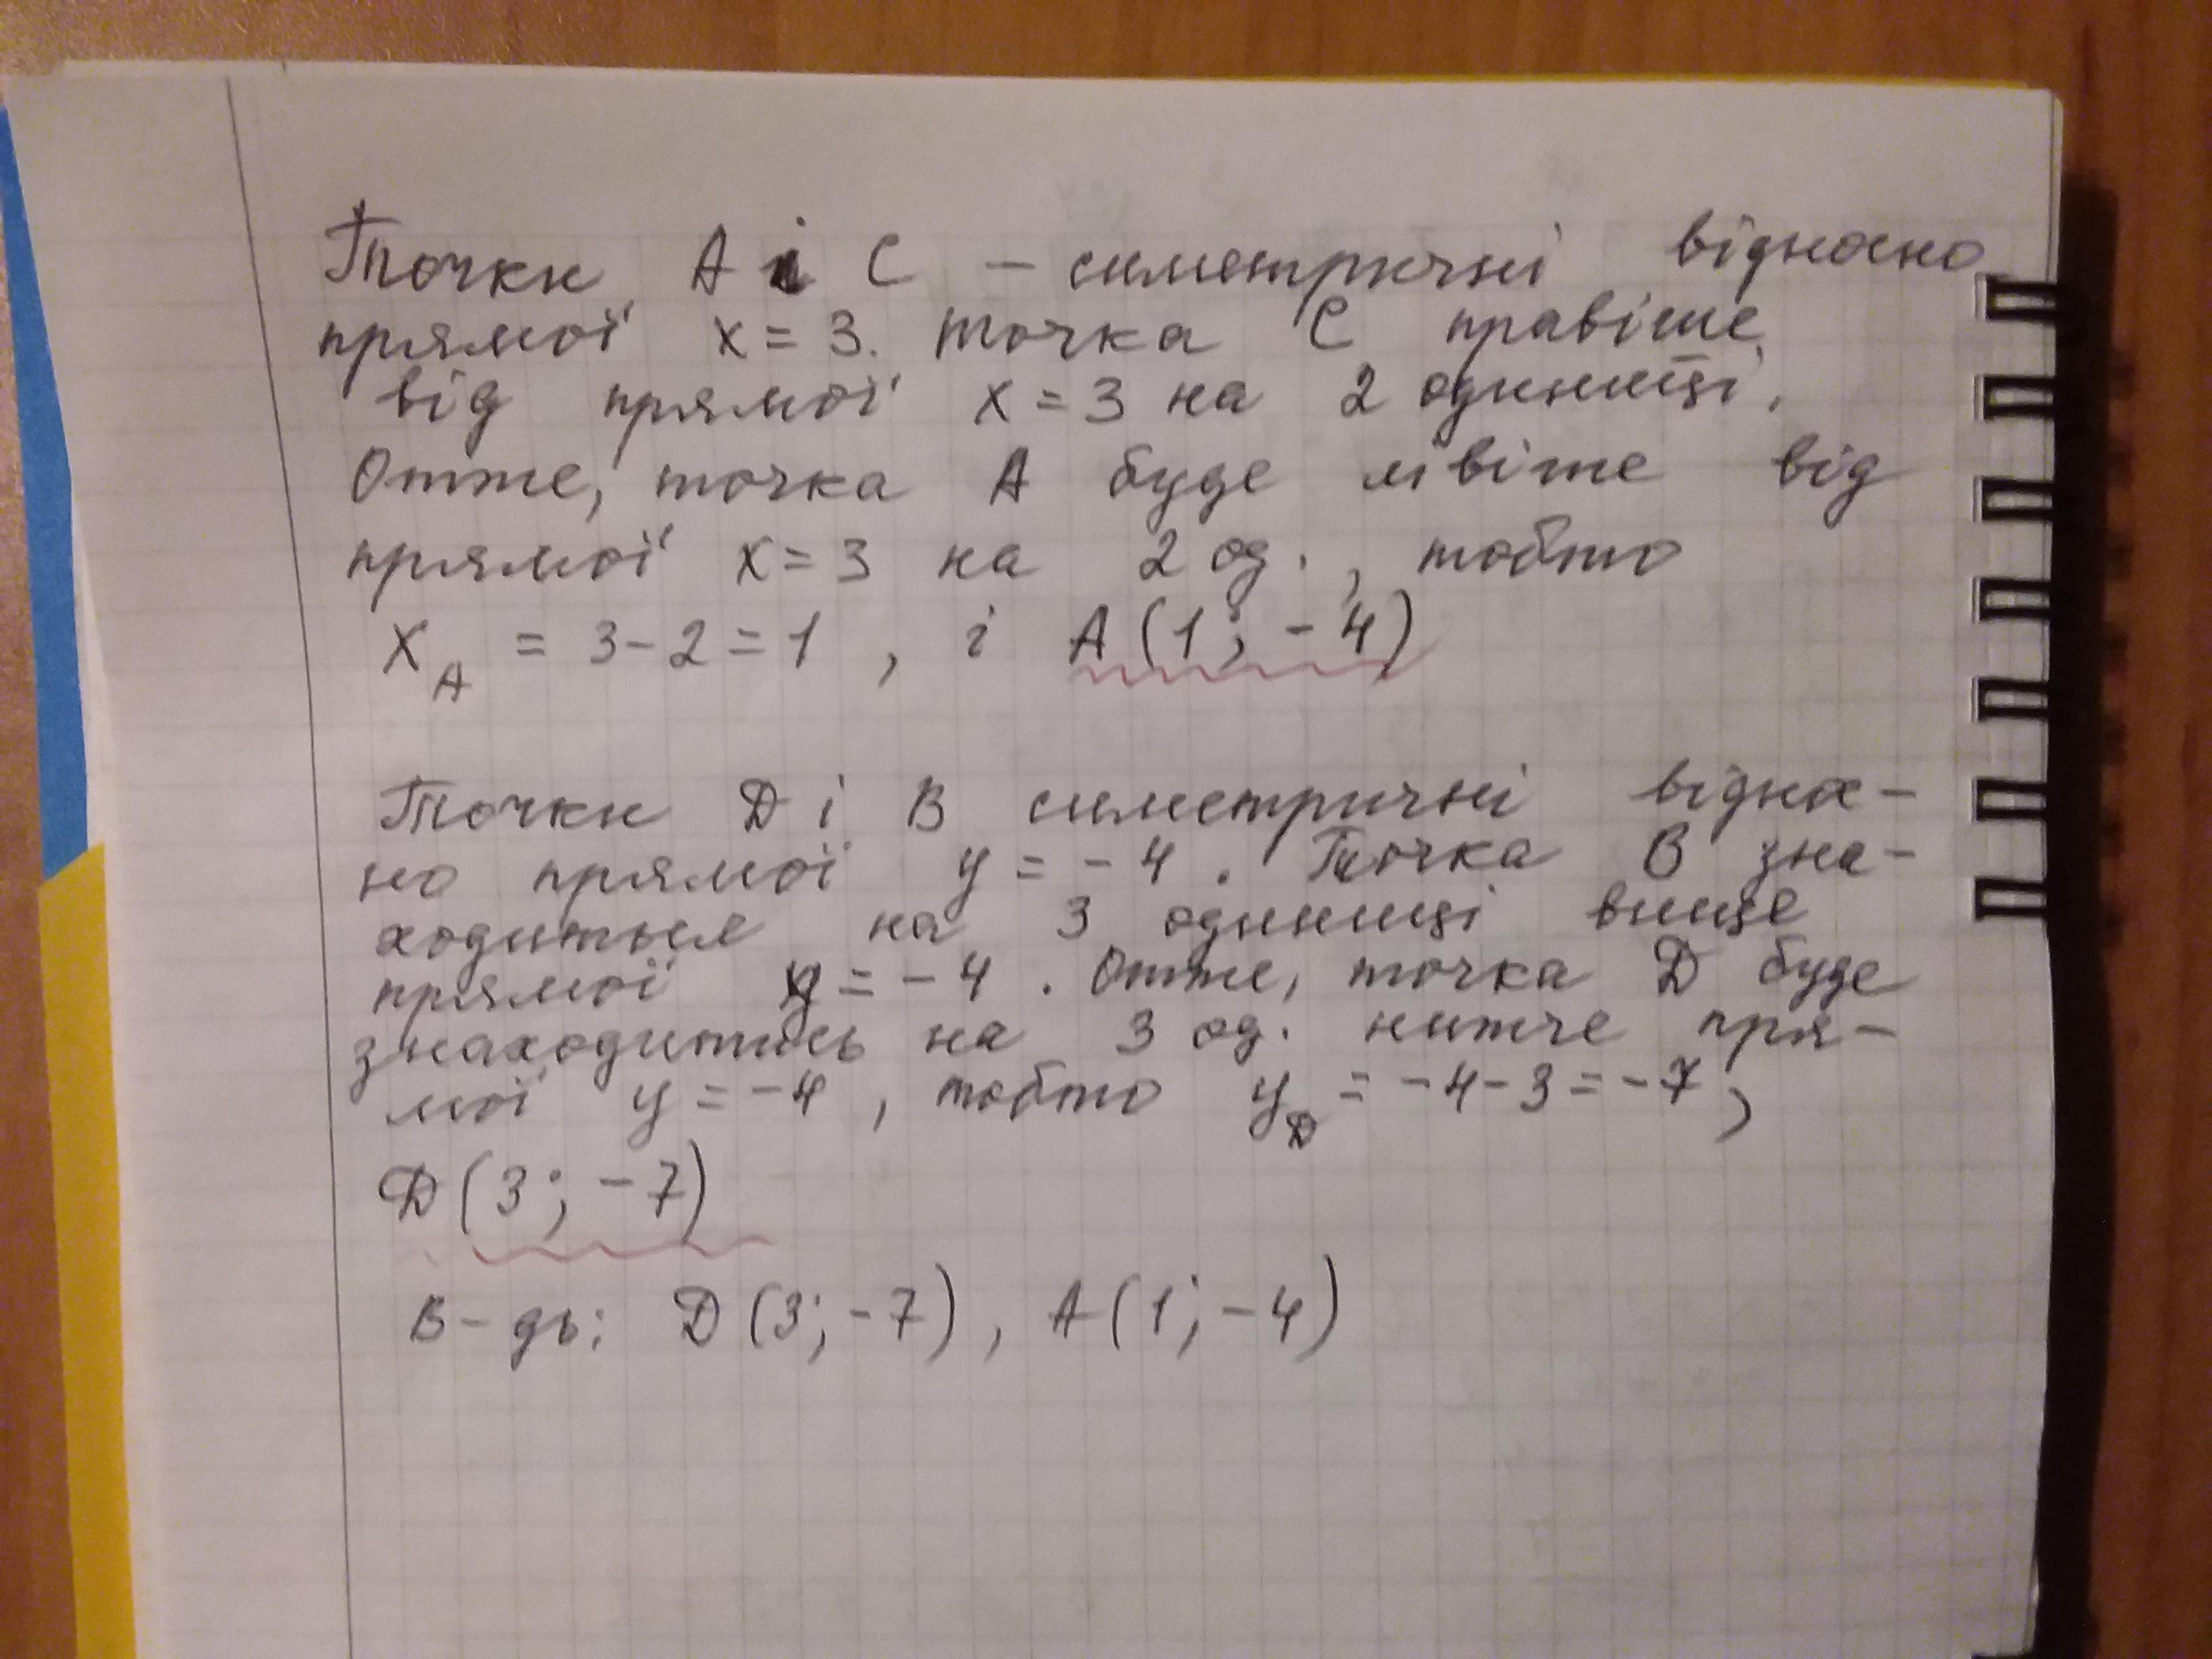 Точки А і С – симетричні відносно
прямої x = 3. точка С правіше
від прямої x = 3 на 2 одиниці.
Отже, точка А буде лівіше від
прямої x = 3 на 2 од., тобто
x_A = 3 - 2 = 1, і А(1; -4)
Точки D і В симетричні віднос-
но прямої y = -4. Точка В зна-
ходиться на 3 одиниці вище
прямої y = -4. Отже, точка D буде
знаходитись на 3 од. нижче пря-
мої y = -4, тобто y_D = -4 - 3 = -7,
D(3; -7)
В-дь: D(3; -7), А(1; -4)